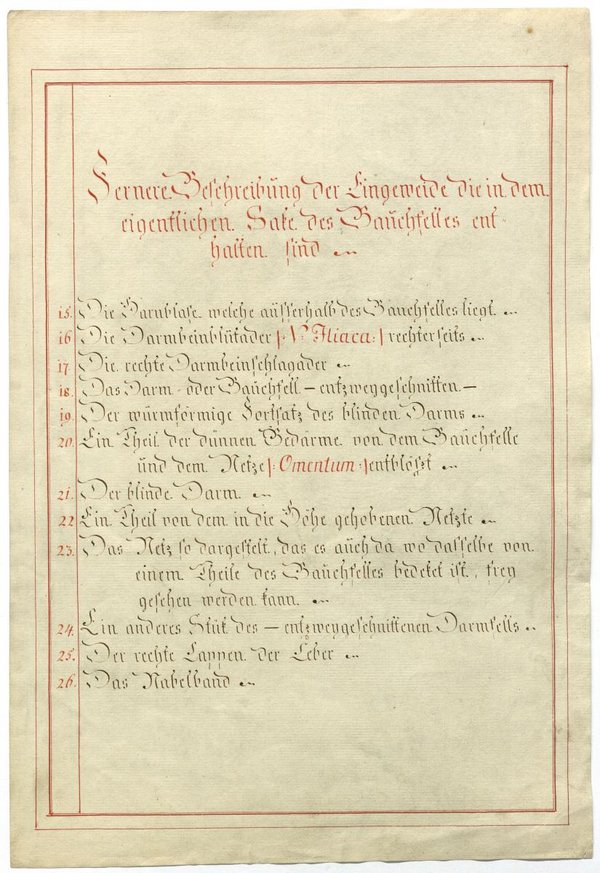 Fernere Beschreibung der Eingeweide die in dem
eigentlichen Sake des Bauchfelles ent-
halten sind
15. Die Harnblase welche äusserhalb des Bauchfelles liegt.
16 Die Darmbeinblutader |: V. Iliaca :| rechterseits
17 Die rechte Darmbeinschlagader
18. Das Darm- oder Bauchfell — entzweygeschnitten. —
19. Der wurmförmige Fortsatz des blinden Darms
20. Ein Theil der dunnen Gedärme von dem Bauchfelle
und dem Netze |: Omentum :| entblösst
21. Der blinde Darm.
22 Ein Theil von dem in die Höhe gehobenen Netzte
23. Das Netz so dargestelt, das es auch da wo dasselbe von
einem Theile des Bauchfelles bedeket ist, frey
gesehen werden kann.
24. Ein anderes Stük des — entzweygeschnittenen Darmfells
25. Der rechte Lappen der Leber
26. Das Nabelband